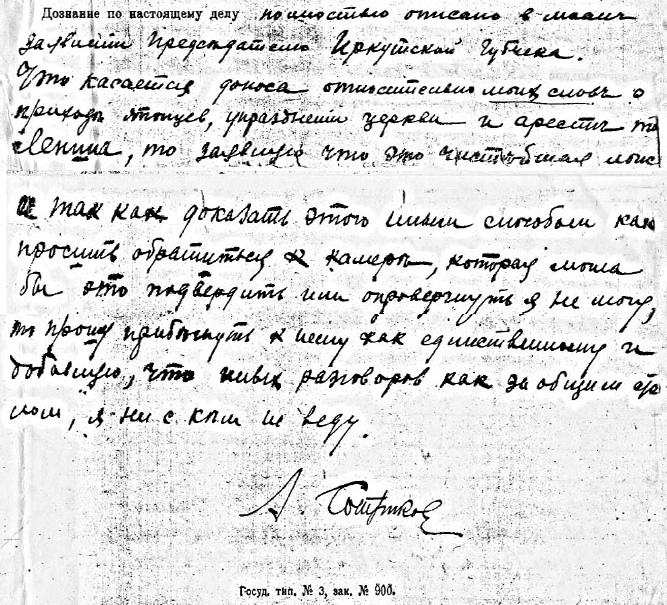 Дознание по настоящему делу полностью описано в моем
заявлении Председателю Иркутской Губчека.
Что касается доноса относительно моих слов о
приходе японцев, упразднении церкви и аресте т.
Ленина, то заявляю что это чистейшая ложь
и так как доказать этого иным способом как
просить обратиться к камере, которая могла
бы это подтвердить или опровергнуть я не могу,
то прошу прибегнуть к нему как единственному и
добавляю, что никаких разговоров как за общим сто
лом, я ни с кем не веду.
А.
Госуд. тип. № 3, зак. № 900.